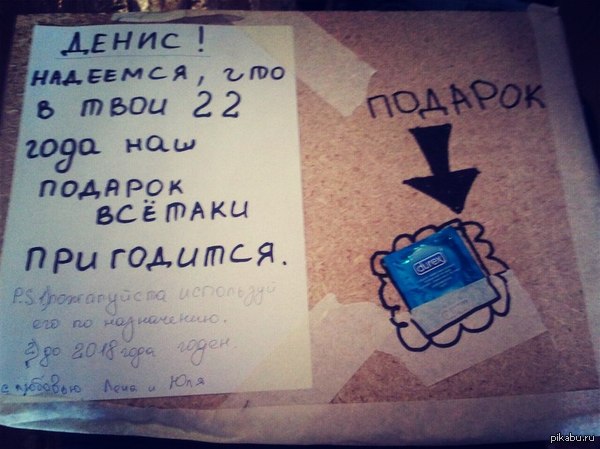 ДЕНИС!
НАДЕЕМСЯ, ЧТО
В ТВОИ 22
ГОДА НАШ
ПОДАРОК
ВСЁТАКИ
ПРИГОДИТСЯ.
P.S. 1) Пожалуйста используй
его по назначению.
2) до 2018 года годен
с любовью Лена и Юля
ПОДАРОК
durex
pikabu.ru